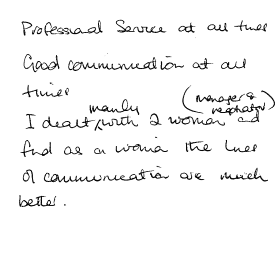 Professional Service at all times
Good communication at all
times
mainly (manager & reception)
I dealt with 2 woman and
find as a woman the lines
of communication are much
better.